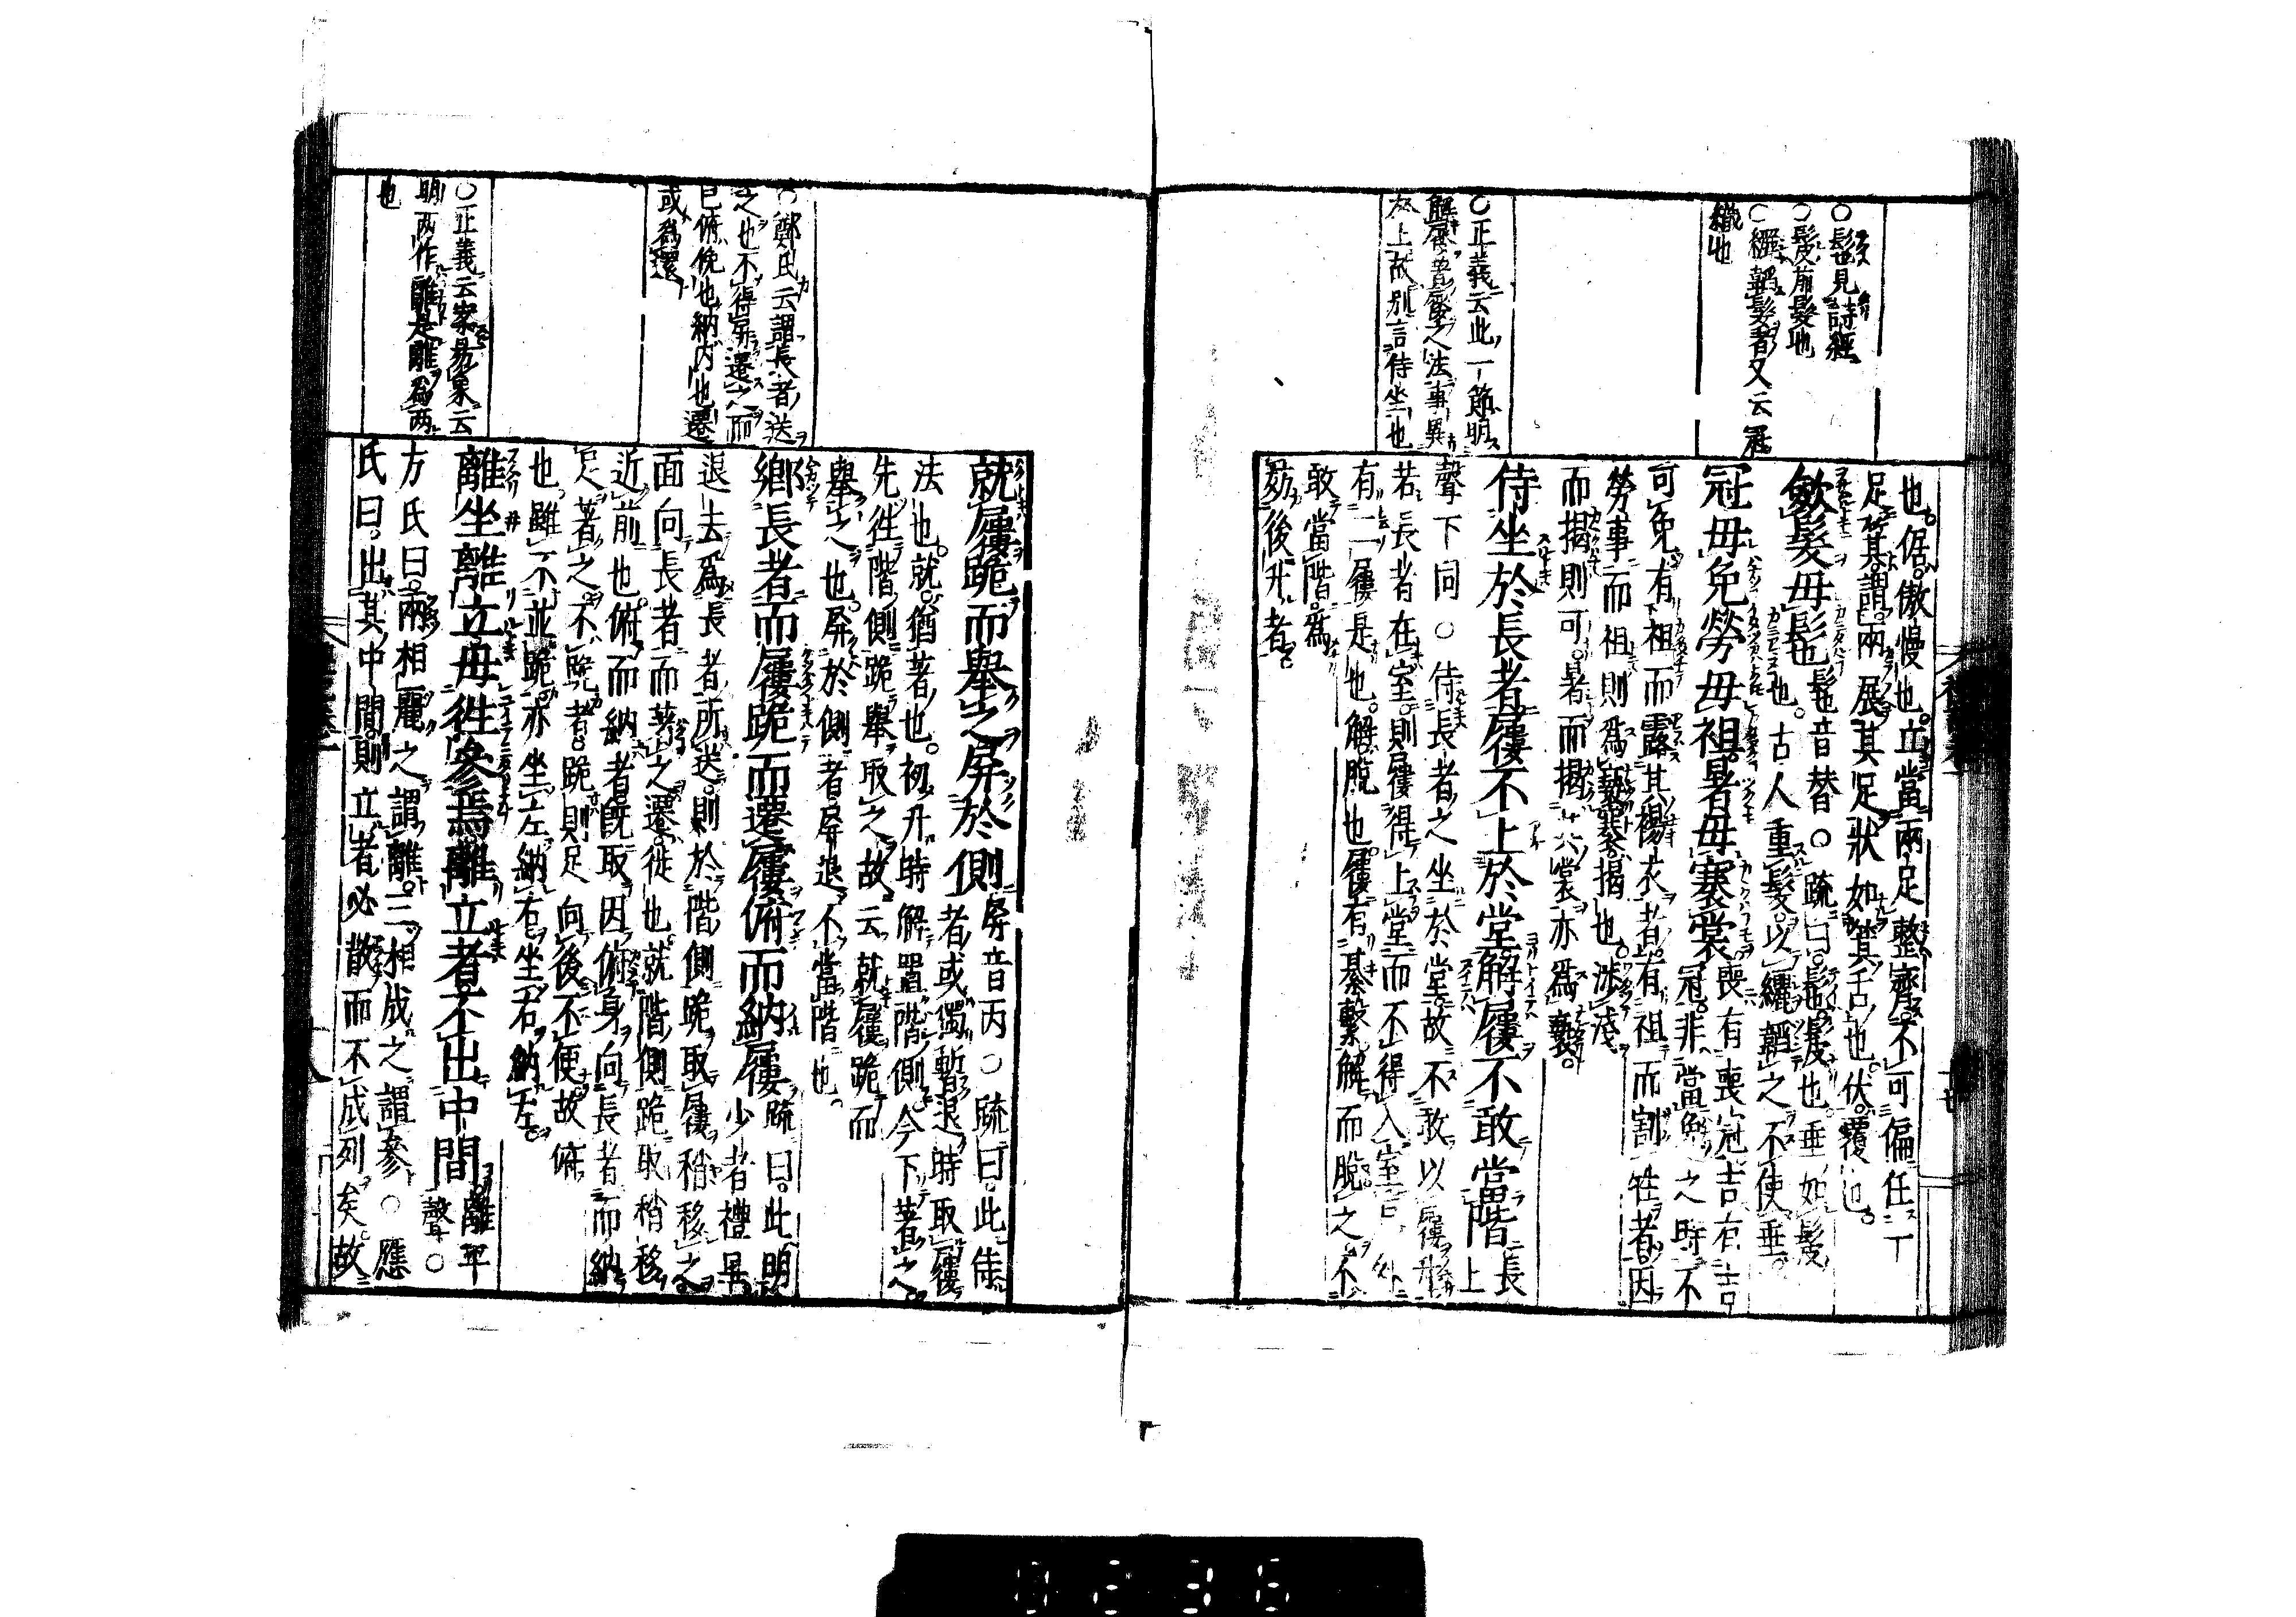 ○髢見詩經
○髲前髮地
○纚韜髮者又云冠
織也
○正義云此一節明
解屨着屨之法事異
於上故別言侍坐也
也倨傲慢也立當兩足整齊不可偏任一
足箕謂兩展其足狀如箕舌也伏覆也
斂髮毋髢髢音替○疏曰髢髲也垂如髲
也古人重髮以纚韜之不使垂
冠毋免勞毋袒暑毋褰裳喪有喪冠吉有吉
冠非當免之時不
可免有袒而露其裼衣者有袒而割牲者因
勞事而袒則爲褻褰揭也涉淺
而揭則可暑而揭其裳亦爲褻
侍坐於長者屨不上於堂解屨不敢當階長
上
聲下同○侍長者之坐於堂故不敢以屨升
若長者在室則屨得上堂而不得入室戶外
有二屨是也解脫也屨有綦繫解而脫之不
敢當階爲
妨後升者
○鄭氏云謂長者送
之也不得屏遷之而
已俯俛也納內也遷
或爲還
○正義云案易象云
明兩作離是離爲兩
也
就屨跪而舉之屏於側屏音丙○疏曰此侍
者或獨暫退時取屨
法也就猶著也初升時解置階側今下著之
先往階側跪舉取之故云就屨跪而
舉之也屏於側者屏退不當階也
鄉長者而屨跪而遷屨俯而納屨疏曰此明
少者禮畢
退去爲長者所送則於階側跪取屨稍移之
面向長者而著之遷徙也就階側跪取稍移
近前也俯而納者既取因俯身向長者而納
足著之不跪者跪則足向後不便故俯
也雖不並跪亦坐左納右坐右納左
離坐離立毋往參焉離立者不出中間離平
聲○
方氏曰兩相麗之謂離三相成之謂參○應
氏曰出其中間則立者必散而不成列矣故